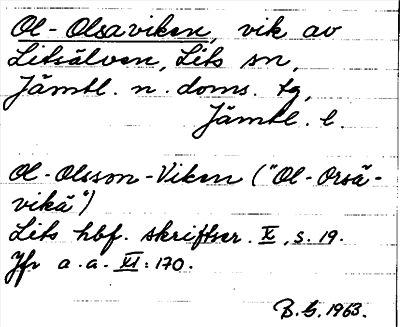 Ol-Olsaviken, vik av
Litsälven, Lits sn,
Jämtl. n. doms. tg,
Jämtl. l.
Ol-Olsson-Viken ("Ol-Orsä-
vikä")
Lits hbf. skriftser. X, s. 19.
Jfr a.a. XI:170.
B.G. 1963.